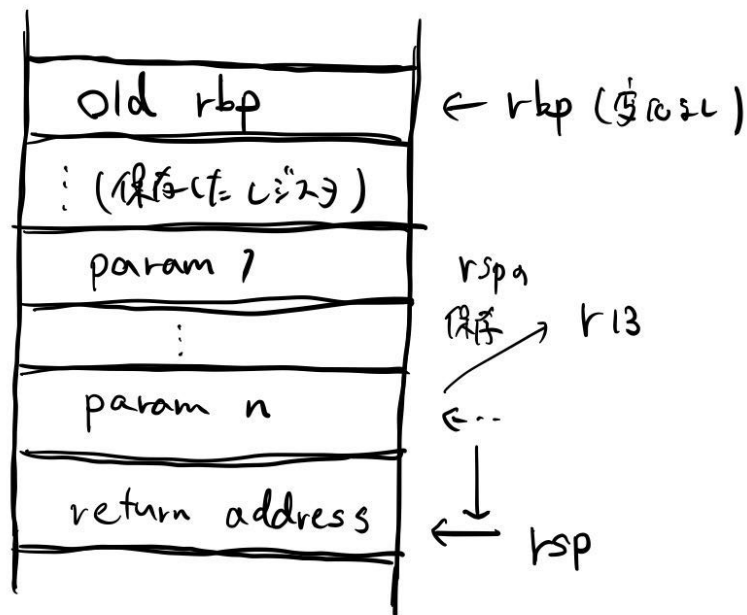 old rbp
← rbp (変化なし)
⋮ (保存したレジスタ)
param 1
rspの
保存
r13
⋮
param n
←...
return address
← rsp